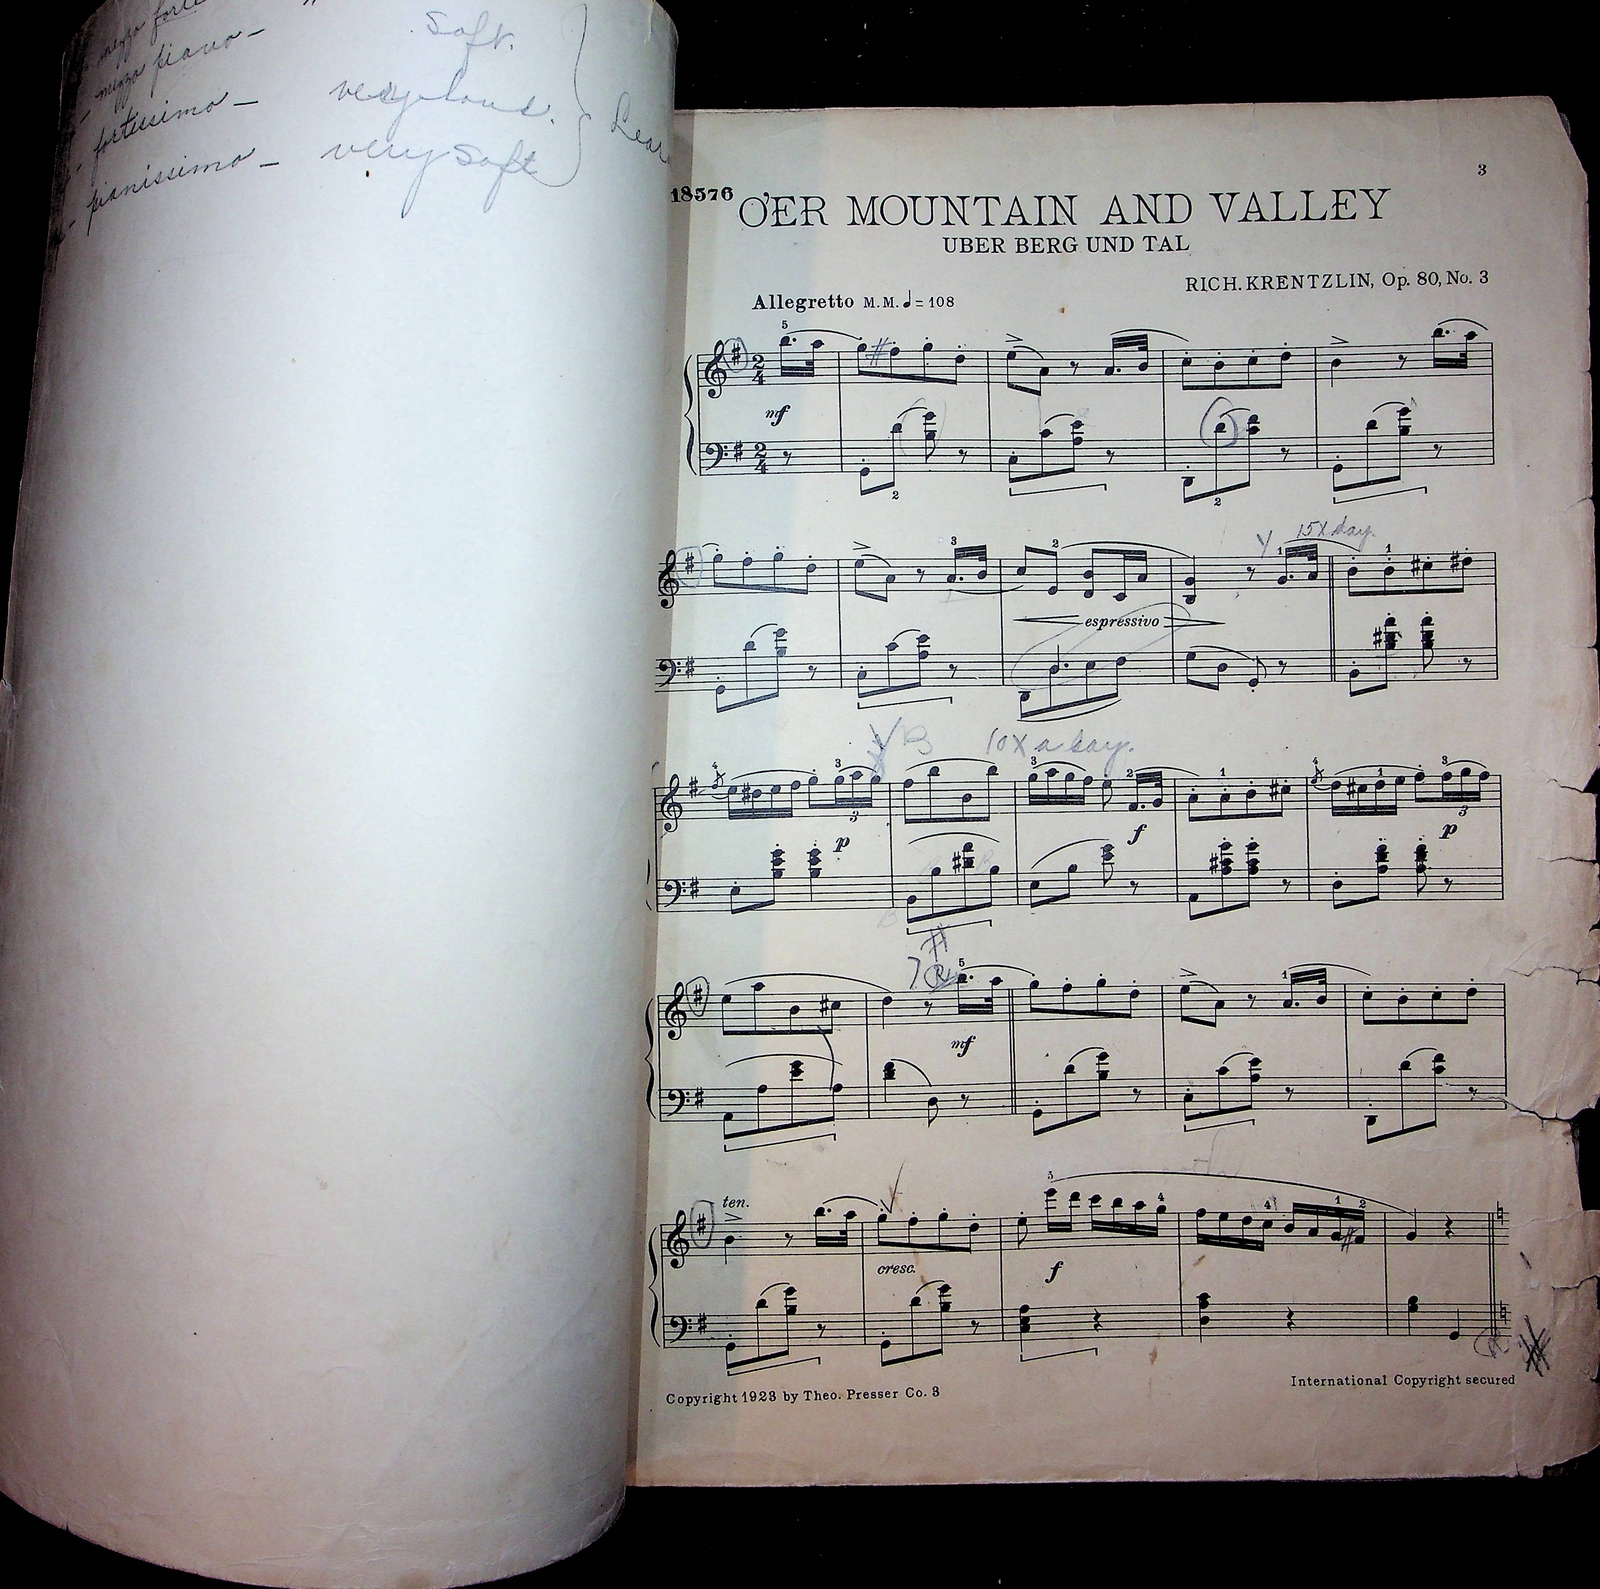 mezzo forte
mezzo piano — soft.
fortissimo — very loud.
pianissimo — very soft
3
18576
O'ER MOUNTAIN AND VALLEY
UBER BERG UND TAL
RICH. KRENTZLIN, Op. 80, No. 3
Allegretto M.M. ♩= 108
5
2
4
mf
2
4
2
2
15X day.
3
2
1
1
espressivo
B 10X a day.
4
3
3
2
1
4
1
3
3
p
f
3
p
5
1
mf
ten.
5
4
4
1
2
cresc.
f
Copyright 1923 by Theo. Presser Co. 3
International Copyright secured